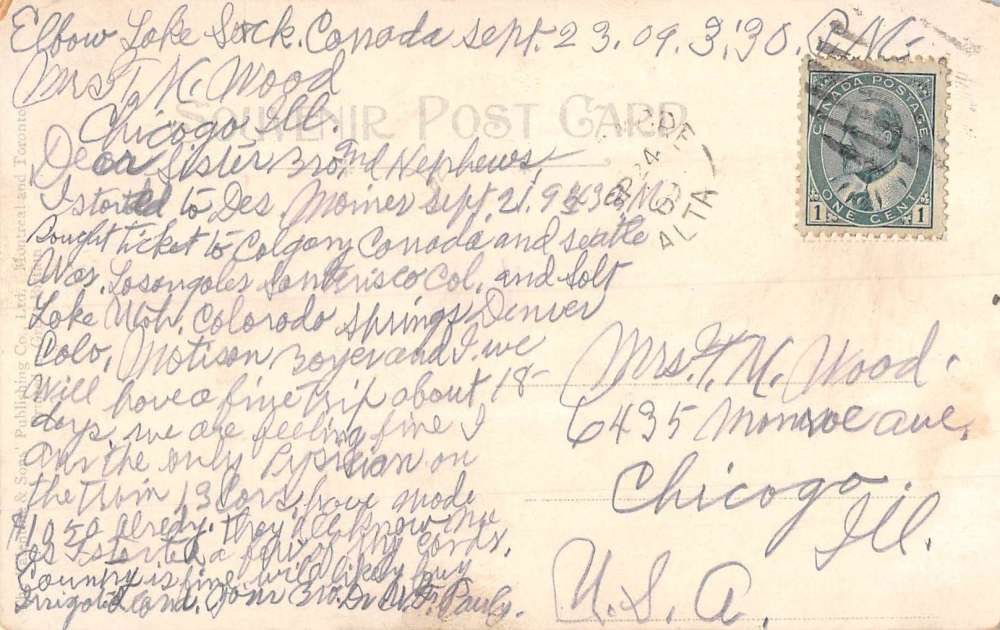 Elbow Lake Sack. Canada sept. 23. 09. 3:30. P.M.
Mrs T. M. Wood
Chicogo Ill.
SOUVENIR POST CARD
Dear Sister Bro. and Nephews,
I storted to Des. Moines Sept. 21. 9
Bought ticket to Colgary Conada and seatle
Was. Losongoles Col. and Solt
Loke Utoh. Colorodo Springs Denver
Colo, Motison Boyer and I. we
will hove a fine trip about 18-
days. we are feeling fine I
am the only on
the troin 13 Cors, hove mode
$10.50 alredy. they all know me
as I storted a few of my Cords.
Country is fine will likely buy
Irrigoted Lond. your Bro. Dr. Pauly.
CANADA POSTAGE
1 ONE CENT 1
24
ALTA
Mrs. T. M. Wood.
6435 Monroe ave,
Chicogo.
Ill.
U. S. A.
& Sons' Publishing Co., Ltd., Montreal and Toronto